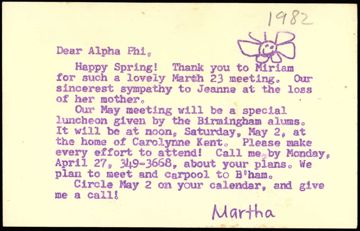 1982
Dear Alpha Phi,
Happy Spring! Thank you to Miriam
for such a lovely March 23 meeting. Our
sincerest sympathy to Jeanne at the loss
of her mother.
Our May meeting will be a special
luncheon given by the Birmingham alums.
It will be at noon, Saturday, May 2, at
the home of Carolynne Kent. Please make
every effort to attend! Call me by Monday,
April 27, 349-3668, about your plans. We
plan to meet and carpool to B'ham.
Circle May 2 on your calendar, and give
me a call!
Martha